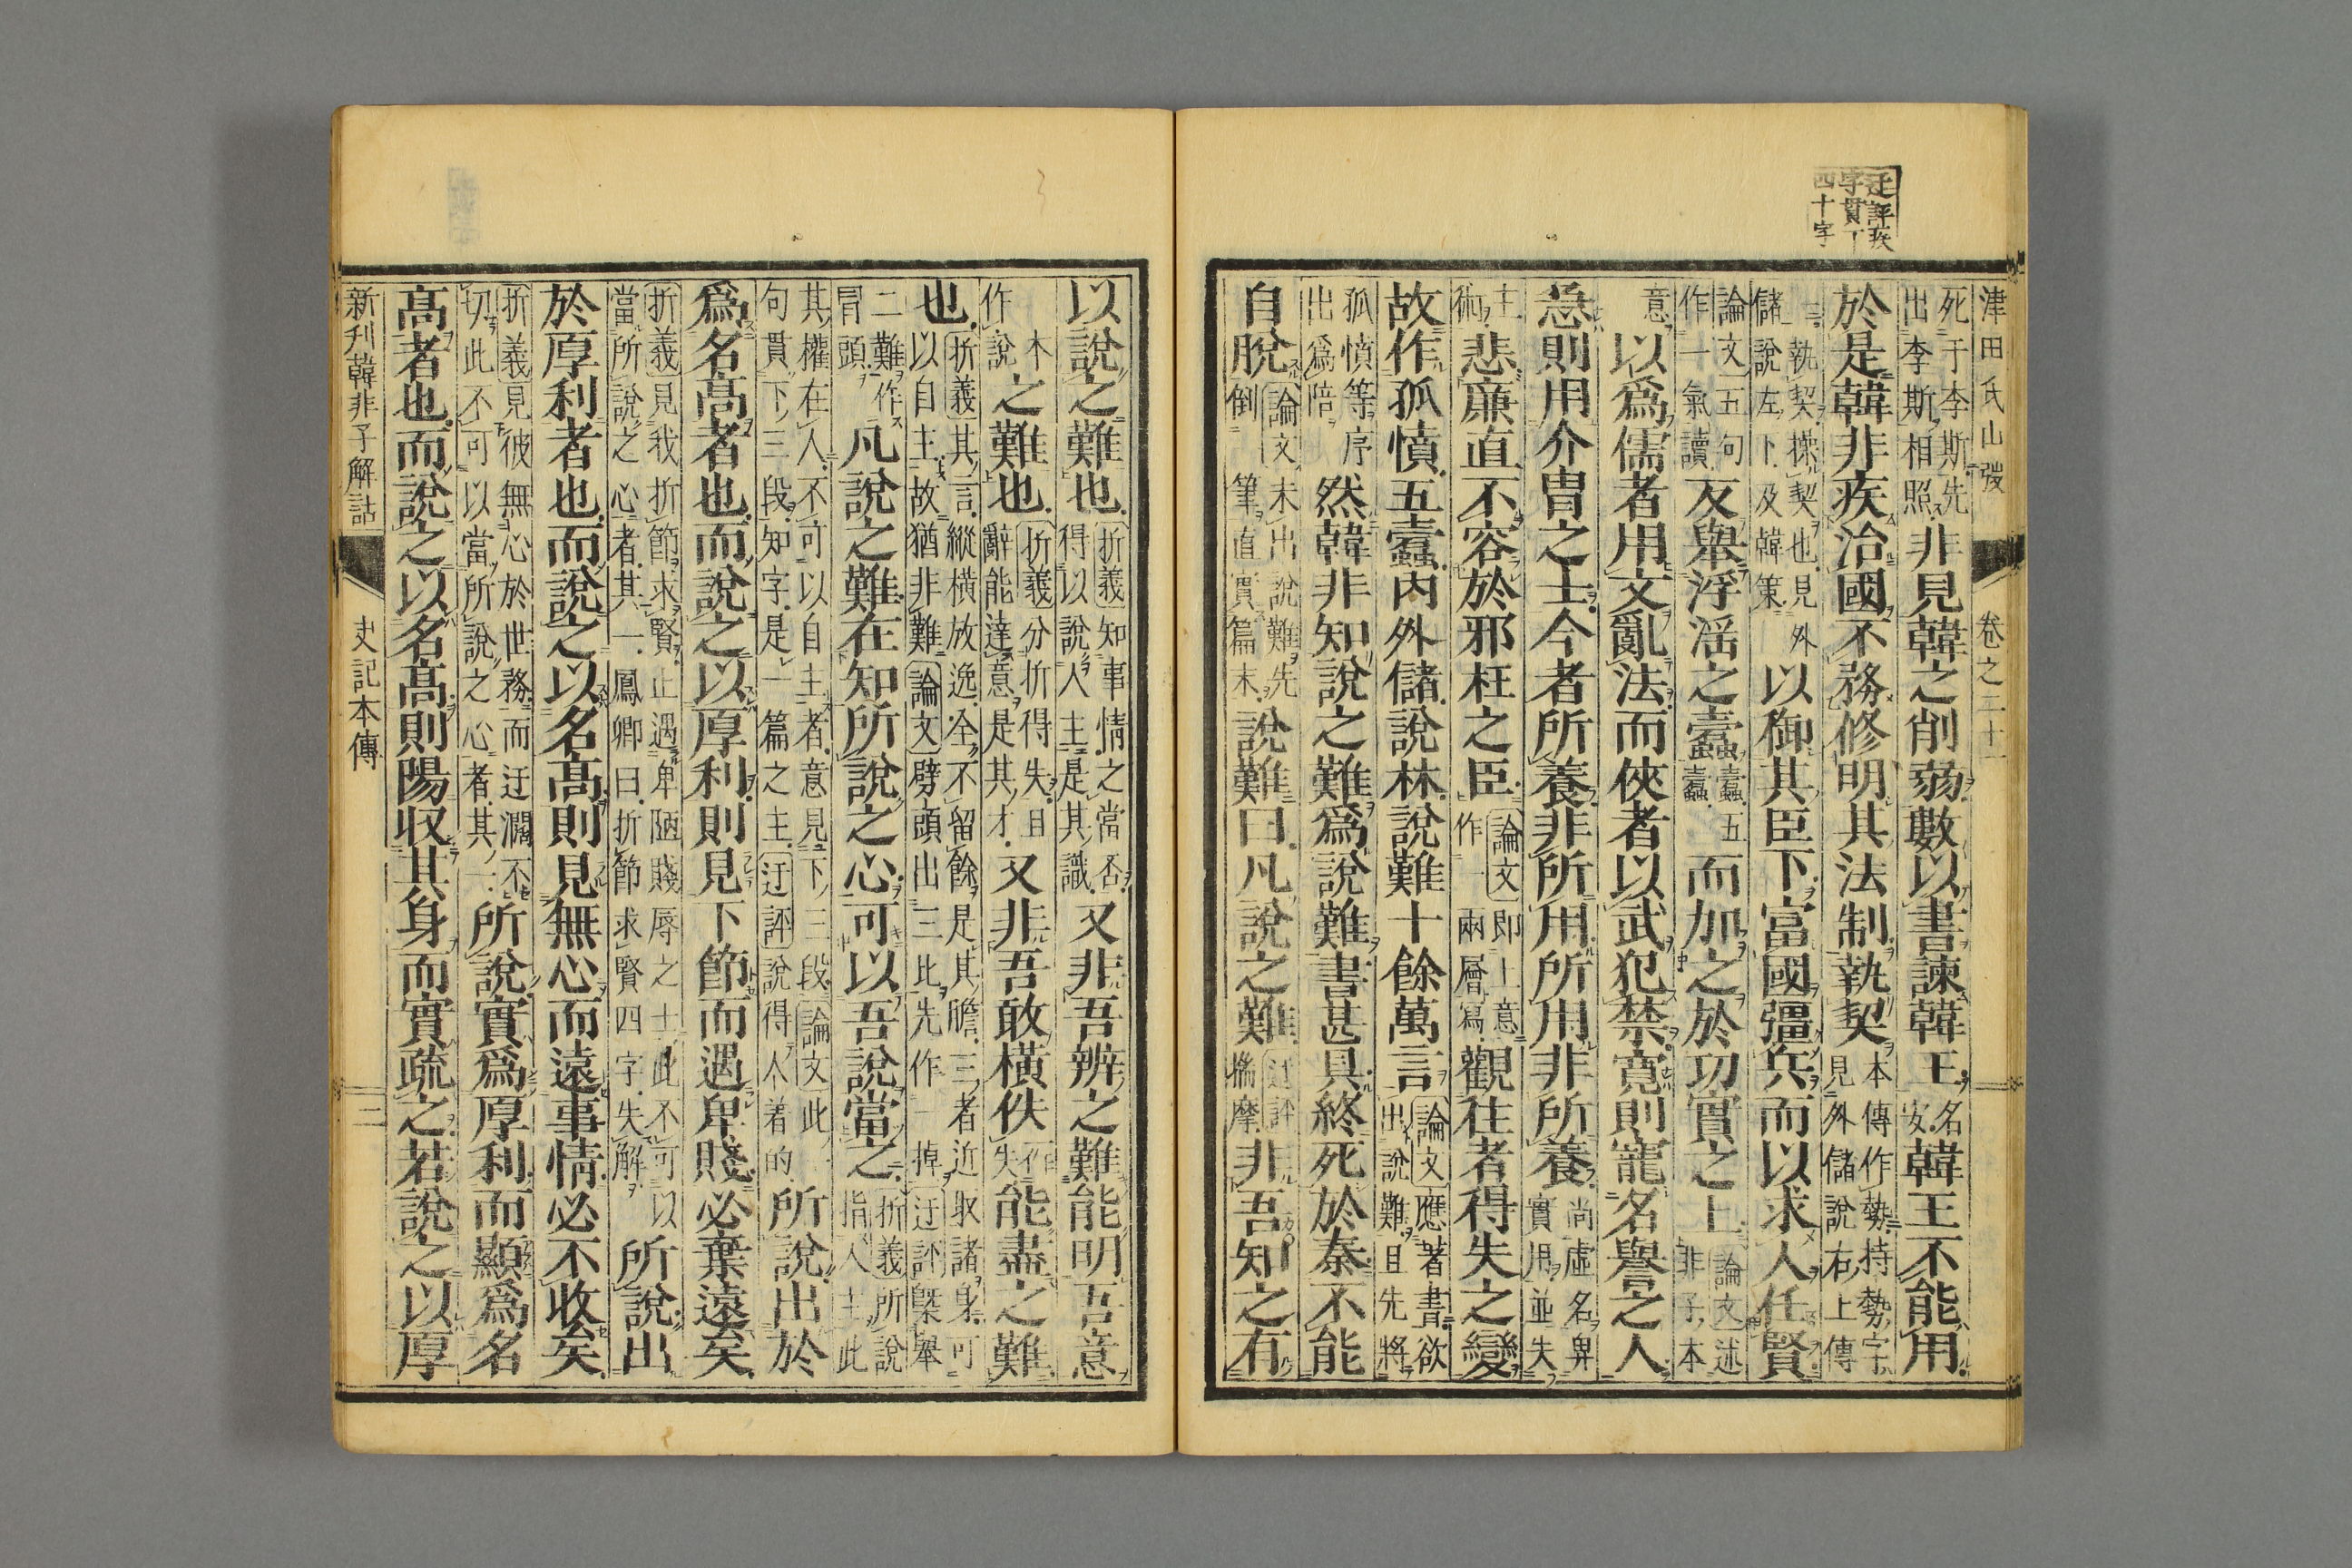 迂評疾
字貫丁
四十字
津田氏山發 卷之二十一
死于李斯先
出李斯相照
非見韓之削弱數以書諫韓王
名安
韓王不能用
於是韓非疾治國不務修明其法制執契
本傳作勢持勢字
見外儲說右上傳
執契操契也見外
儲說左下及韓策
以御其臣下富國彊兵而以求人任賢
論文五句
作一氣讀
反舉浮淫之蠹
五蠹
而加之於功實之上
論文述
非子本
意
以爲儒者用文亂法而俠者以武犯禁寬則寵名譽之人
急則用介冑之士今者所養非所用所用非所養
尚虛名卑
實用並失
主
術
悲廉直不容於邪枉之臣
論文即上意
作一兩層寫
觀往者得失之變
故作孤憤五蠹內外儲說林說難十餘萬言
論文應著書欲
出說難且先將
孤憤等序
出爲陪
然韓非知說之難爲說難書甚具終死於秦不能
自脫
論文未出說難先
倒筆直貫篇末
說難曰凡說之難
迂評
揣摩
非吾知之有
以說之難也
折義知事情之當否
得以說人主是其識
又非吾辨之難能明吾意
本
作說
之難也
折義分折得失且
辭能達意是其才
又非吾敢橫佚
作失
能盡之難
也
折義其言縱橫放逸全不留餘是其膽三者近取諸身可
以自主故猶非難論文劈頭出三此先作一掉迂評槩舉
二難作
冒頭
凡說之難在知所說之心可以吾說當之
折義所說
指人主此
其權在人不可以自主者意見下三段論文此一
句貫下三段知字是一篇之主迂評說得人着的
所說出於
爲名高者也而說之以厚利則見下節而遇卑賤必棄遠矣
折義見我折節求賢止遇卑陋賤辱之士此不可以
當所說之心者其一鳳卿曰折節求賢四字失解
所說出
於厚利者也而說之以名高則見無心而遠事情必不收矣
折義見彼無心於世務而迂濶不
切此不可以當所說之心者其一
所說實爲厚利而顯爲名
高者也而說之以名高則陽収其身而實疏之若說之以厚
新刋韓非子解詁 史記本傳 二